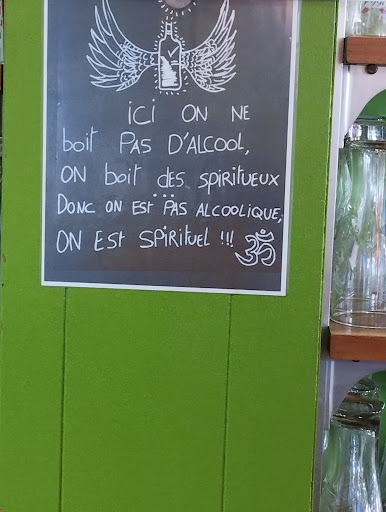 ici ON NE
boit PAS D'ALCOOL,
ON boit des SPIRITUEUX
...
DONC ON EST PAS ALCOOLIQUE,
ON EST SPIRITUEL !!! ॐ